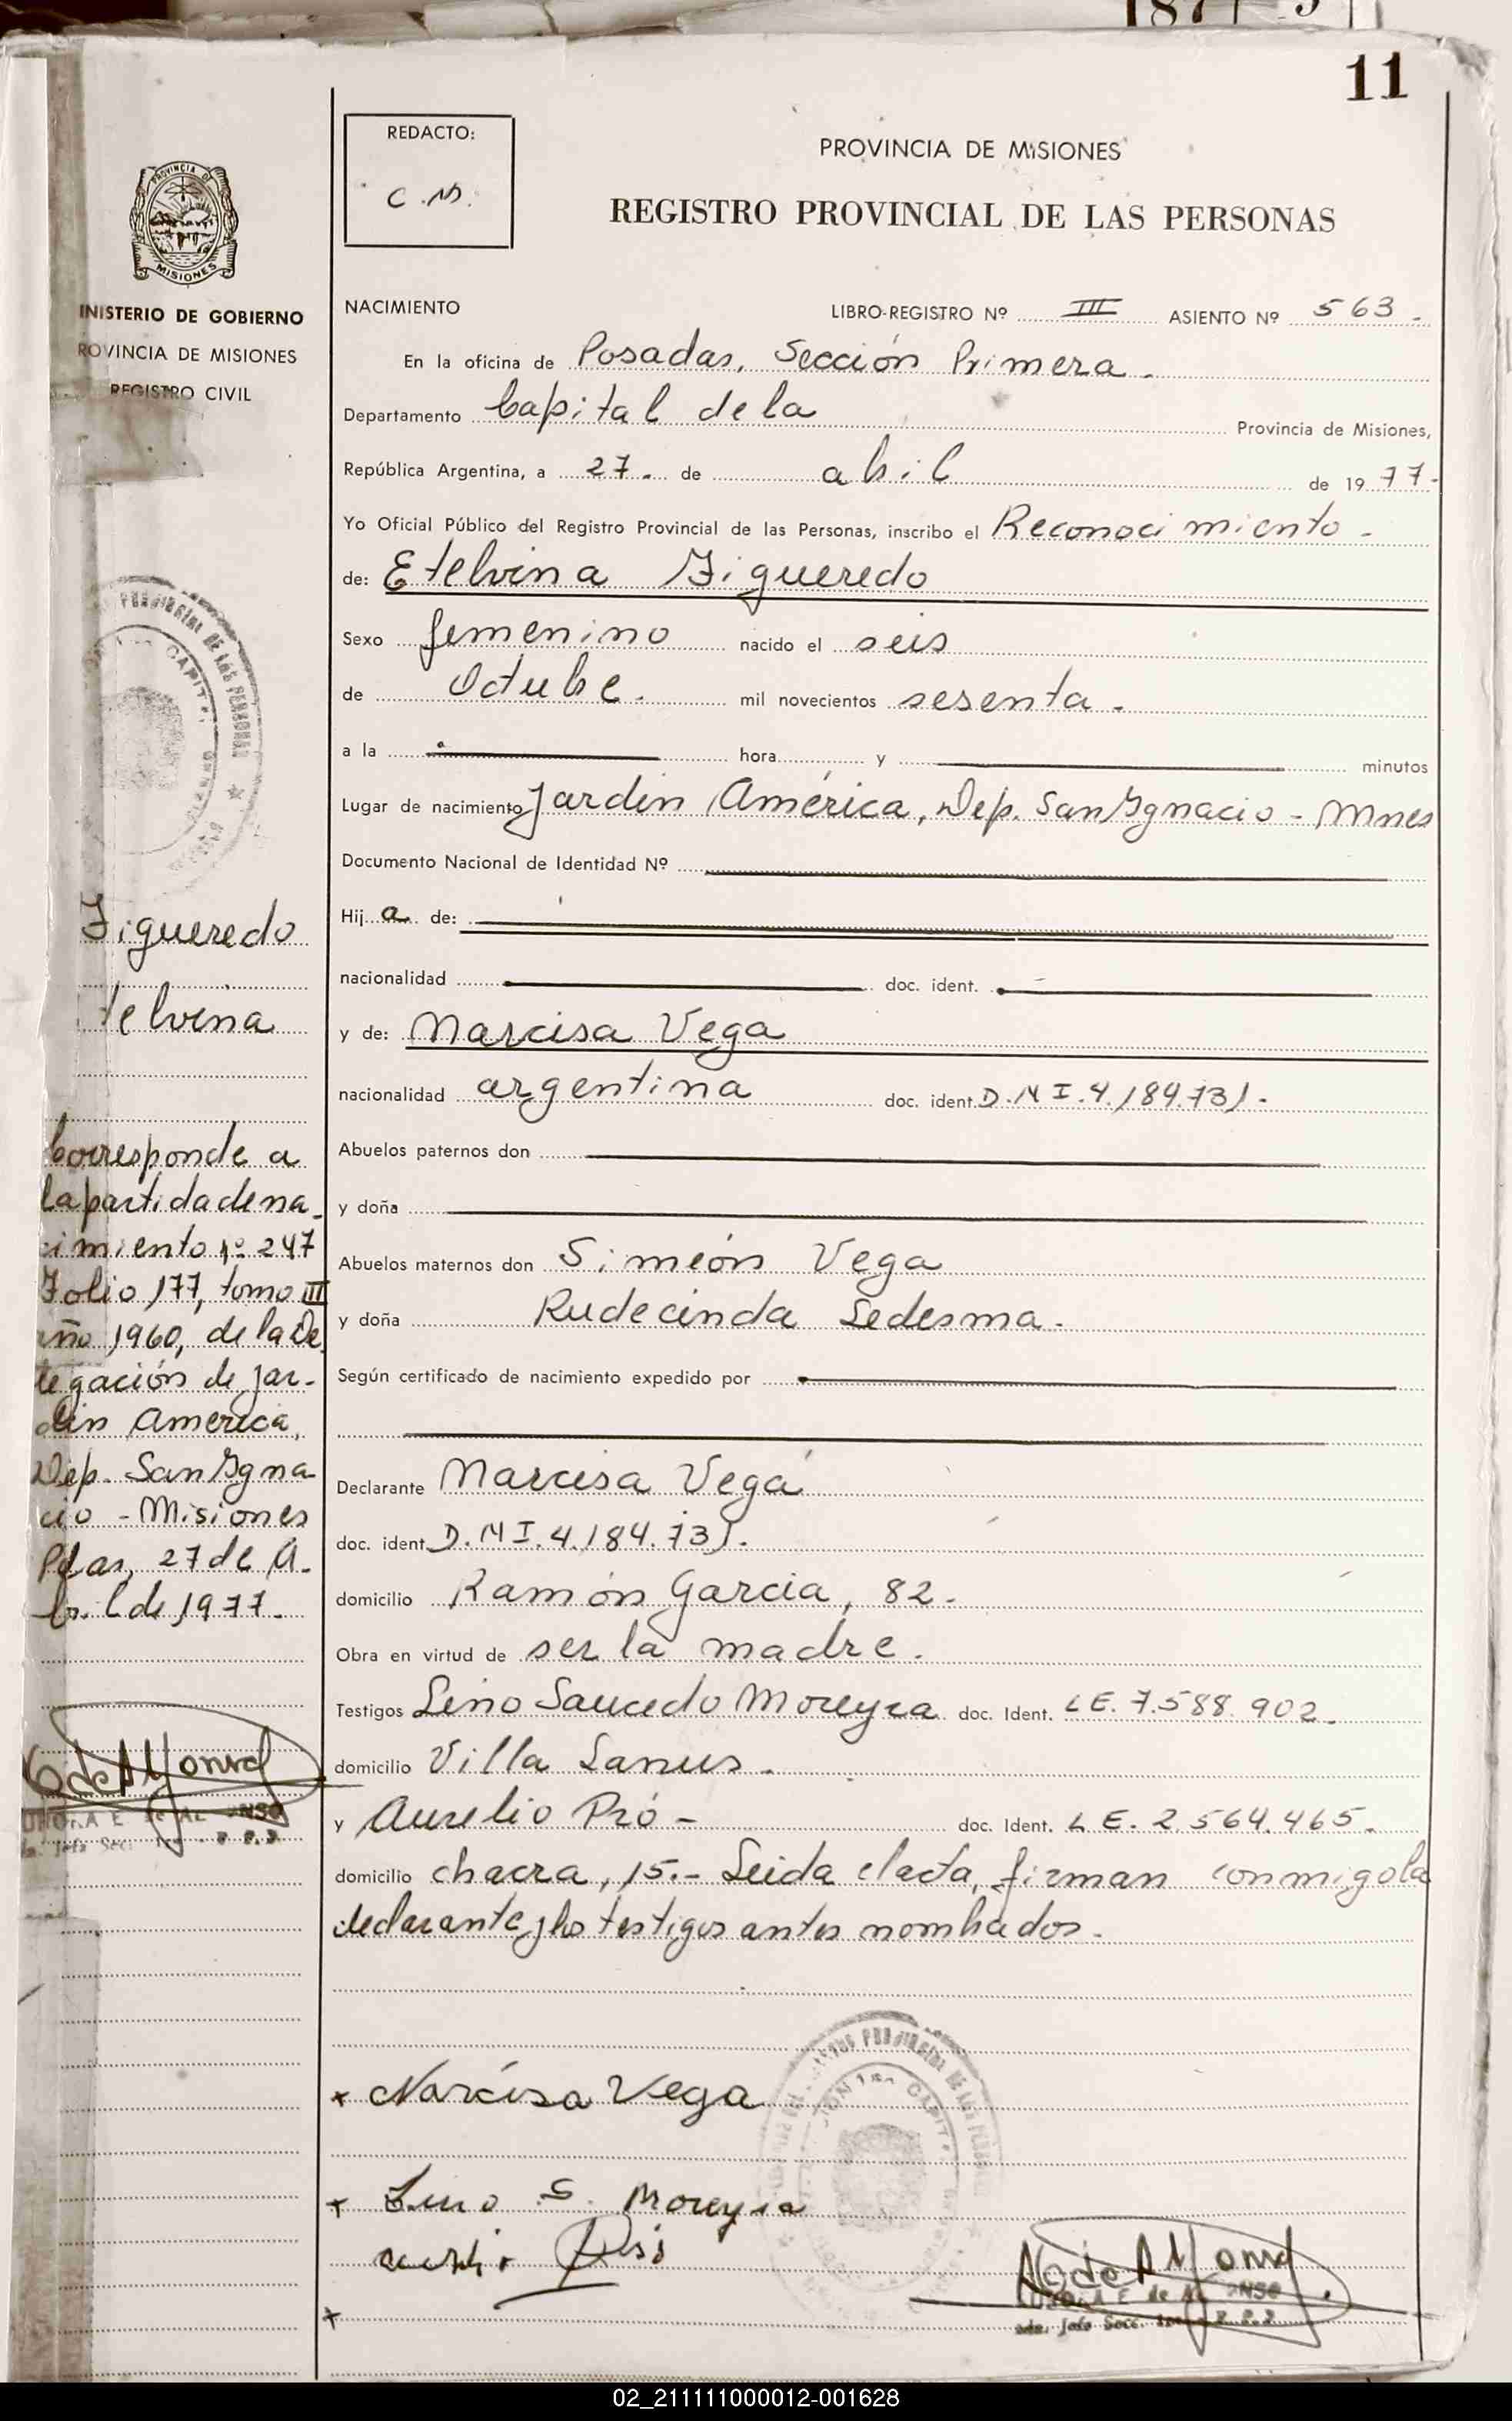 11
REDACTO:
C.M.
PROVINCIA DE MISIONES
REGISTRO PROVINCIAL DE LAS PERSONAS
PROVINCIA DE
MISIONES
INISTERIO DE GOBIERNO
ROVINCIA DE MISIONES
REGISTRO CIVIL
NACIMIENTO LIBRO-REGISTRO Nº III ASIENTO Nº 563.
En la oficina de Posadas, Sección Primera.
Departamento Capital de la Provincia de Misiones,
República Argentina, a 27. de abril de 1977-
Yo Oficial Público del Registro Provincial de las Personas, inscribo el Reconocimiento.
de: Etelvina Figueredo
Sexo femenino nacido el seis
de Octubre. mil novecientos sesenta.
a la hora y minutos
Lugar de nacimiento Jardin América, Dep. San Ygnacio - Mnes
Documento Nacional de Identidad Nº
Hij a de:
nacionalidad doc. ident.
y de: Narcisa Vega
nacionalidad argentina doc. ident. D.N I.4.184.731.
Abuelos paternos don
y doña
Abuelos maternos don Simeón Vega
y doña Rudecinda Ledesma.
Según certificado de nacimiento expedido por
Declarante Narcisa Vega
doc. ident. D.N I.4.184.731.
domicilio Ramón Garcia, 82.
Obra en virtud de ser la madre.
Testigos Lino Saucedo Moreyra doc. Ident. LE.7.588.902.
domicilio Villa Lanus.
y Aurelio Pró - doc. Ident. L E. 2.564.465.
domicilio chacra, 15.- Leida el acta, firman conmigo la
declarante y los testigos antes nombrados.
Figueredo
telvina
Corresponde a
la partida de na-
cimiento nº 247
Folio 177, tomo III
año 1960, de la De
legación de Jar-
din America,
Dep. San Ygna
cio - Misiones
Pdas, 27 de A-
bril de 1977.
x Narcisa Vega
x Lino S. Moreyra
x
02_211111000012-001628